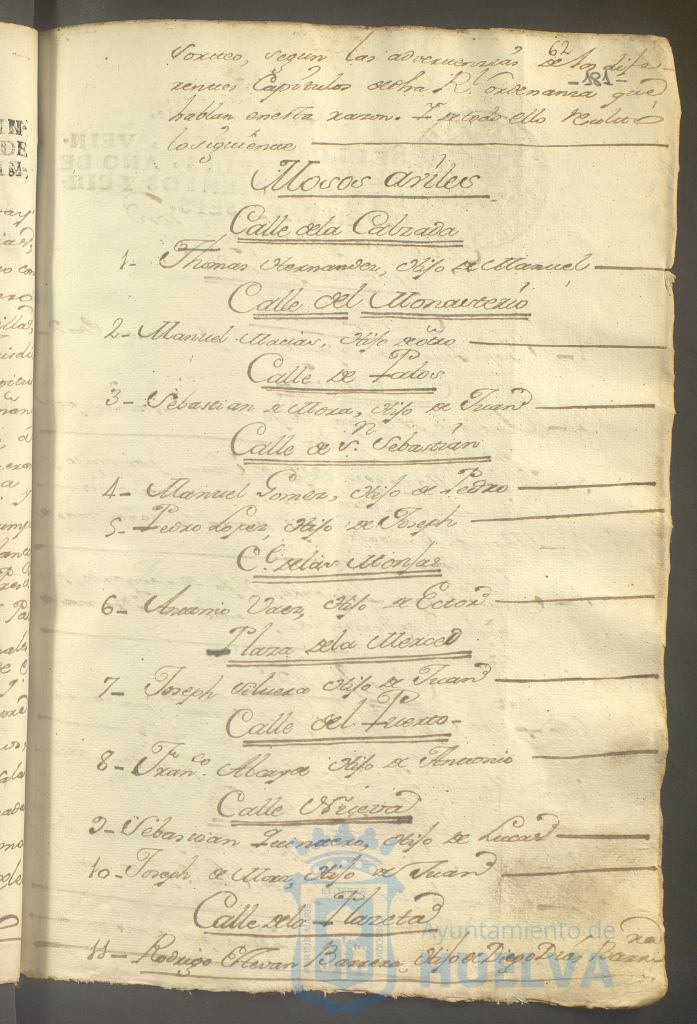 62
-181-
sorteo, segun las advertenzias de los dife-
rentes Capitulos dela Rl. ordenanza que
hablan enesta razon. Y de todo ello resultó
lo siguiente
Mosos útiles
Calle dela Calzada
1- Thomas Hernandez, Hijo de Manuel
Calle del Monasterio
2- Manuel Macias, Hijo de otro
Calle de Palos
3- Sebastian de Mora, Hijo de Juan
Calle de Sn. Sebastian
4- Manuel Gomez, Hijo de Pedro
5- Pedro Lopez, Hijo de Joseph
Ce. delas Monjas
6- Antonio Vaez, Hijo de
Plaza dela Merced
7- Joseph Hijo de Juan
Calle del Puerto
8- Franco. Hijo de Antonio
Calle Nueva
9- Sebastian Hijo de Lucas
10- Joseph de Mora, Hijo de Juan
Calle dela Plazeta
11- Rodrigo Estevan Barrera, Hijo de Diego Dias
Ayuntamiento de
HUELVA